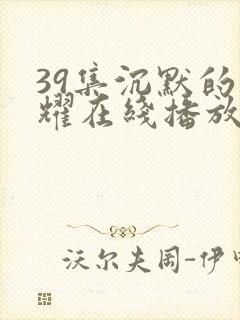 39集沉默的
耀在线播放
沃尔夫冈-伊